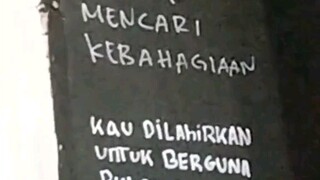 MENCARI
KEBAHAGIAAN
KAU DILAHIRKAN
UNTUK BERGUNA